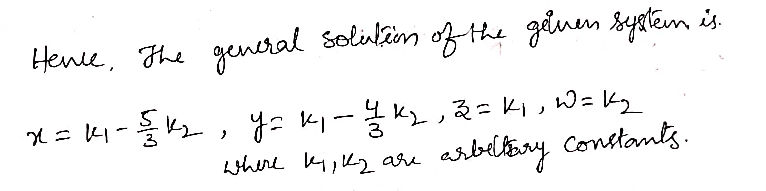 Hence, The general solution of the given system is.
x = k₁ - 5/3 k₂ , y = k₁ - 4/3 k₂ , z = k₁ , w = k₂
where k₁, k₂ are arbitary constants.